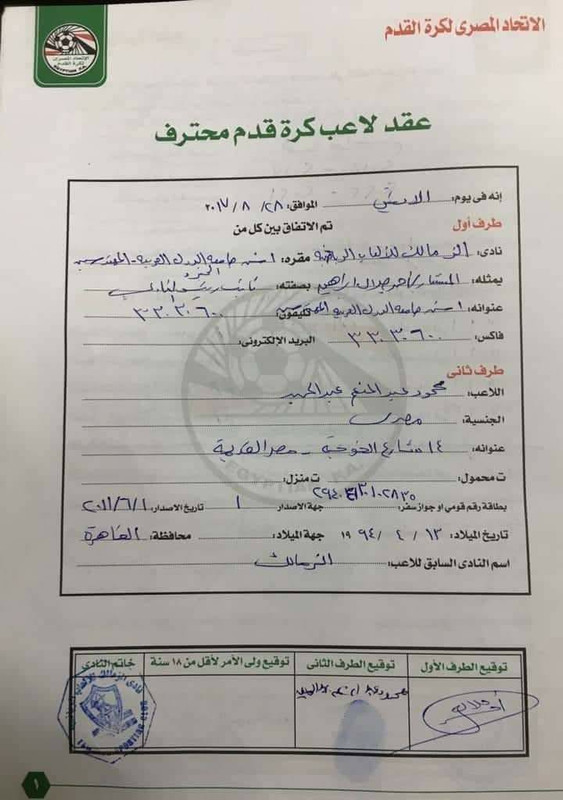 الاتحاد المصرى لكرة القدم
الاتحاد المصرى
لكرة القدم
EGYPTIAN F.A.
عقد لاعب كرة قدم محترف
إنه فى يوم: الاثنين الموافق: ٢٨/ ٨ / ٢٠١٧
طرف أول تم الاتفاق بين كل من
نادى: الزمالك للألعاب الرياضية مقره: ١ ش جامعة الدول العربية - المهندسين
يمثله: المستشار/ أحمد جلال ابراهيم بصفته: نائب رئيس النادى
عنوانه: ١ ش جامعة الدول العربية المهندسين تليفون: ٣٣٠٣٠٦٠٠
فاكس: ٣٣٠٣٠٦٠٠ البريد الإلكترونى:
طرف ثانى
اللاعب: محمود عبد المنعم عبد الحميد
الجنسية: مصرى
عنوانه: ١٤ شارع - مصر القديمة
ت محمول: ت منزل:
بطاقة رقم قومى او جواز سفر: جهة الاصدار ١ تاريخ الاصدار: ٢٠١١/٦/١
تاريخ الميلاد: ١٣ / ٤ / ١٩٩٤ جهة الميلاد: محافظة: القاهرة
اسم النادى السابق للاعب: الزمالك
EGYPTIAN F.A.
توقيع الطرف الأول توقيع الطرف الثانى توقيع ولى الأمر لأقل من ١٨ سنة خاتم النادى
محمود عبد المنعم عبد الحميد
١